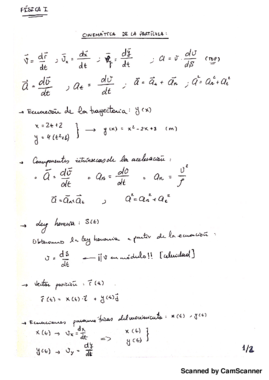 FÍSICA I
CINEMÁTICA DE LA PARTÍCULA:
v̄ = dr̄/dt ; v̄ₓ = dx̄/dt ; dȳ/dt ; a = v · dv/ds
ā = dv̄/dt ; aₜ = dv/dt ; ā = āₜ + āₙ ; a² = aₜ² + aₙ²
→ Ecuación de la trayectoria: y(x)
x = 2t+2
y = 4(t²+2) } → y(x) = x² - 2x + 8 (m)
→ Componentes intrínsecas de la aceleración:
ā = dv̄/dt = aₜ = dv/dt = aₙ = v²/ρ
a² = aₙ² + aₜ²
→ Ley horaria : S(t)
Obtenemos la ley horaria a partir de la ecuación:
v = ds/dt → ¡¡ en módulo!! [celeridad]
→ Vector posición : r̄(t)
r̄(t) = x(t)·ī + y(t)j̄
→ Ecuaciones paramétricas del movimiento : x(t) ; y(t)
x(t) → vₓ = dx/dt } x(t)
y(t) → v_y = dy/dt } y(t)
1/2
Scanned by CamScanner